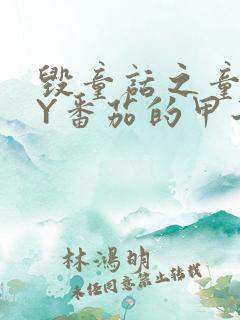 毁童话之童
Y番茄的甲
林鸿明
未经同意禁止转载